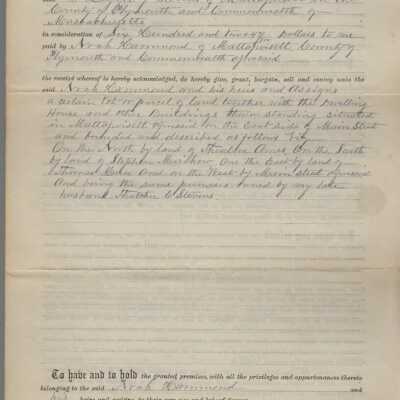 County of Plymouth and Commonwealth of
Massachusetts
in consideration of Six Hundred and twenty Dollars to me
paid by Noah Hammond of Mattapoisett County of
Plymouth and Commonwealth aforesaid
the receipt whereof is hereby acknowledged, do hereby give, grant, bargain, sell and convey unto the
said Noah Hammond and his heirs and Assigns
a certain lot or parcel of land together with the Dwelling
House and other Buildings thereon standing situated
in Mattapoisett aforesaid on the East side of Main Street
and bounded and described as follows Viz
On the North by land of Theodore Ames On the South
by land of Stephen On the East by land of
and on the West by Main Street aforesaid
And being the same premises owned by my late
husband Thatcher C Stevens
To have and to hold the granted premises, with all the privileges and appurtenances thereto
belonging to the said Noah Hammond and
his heirs and assigns, to their own use and behoof forever.